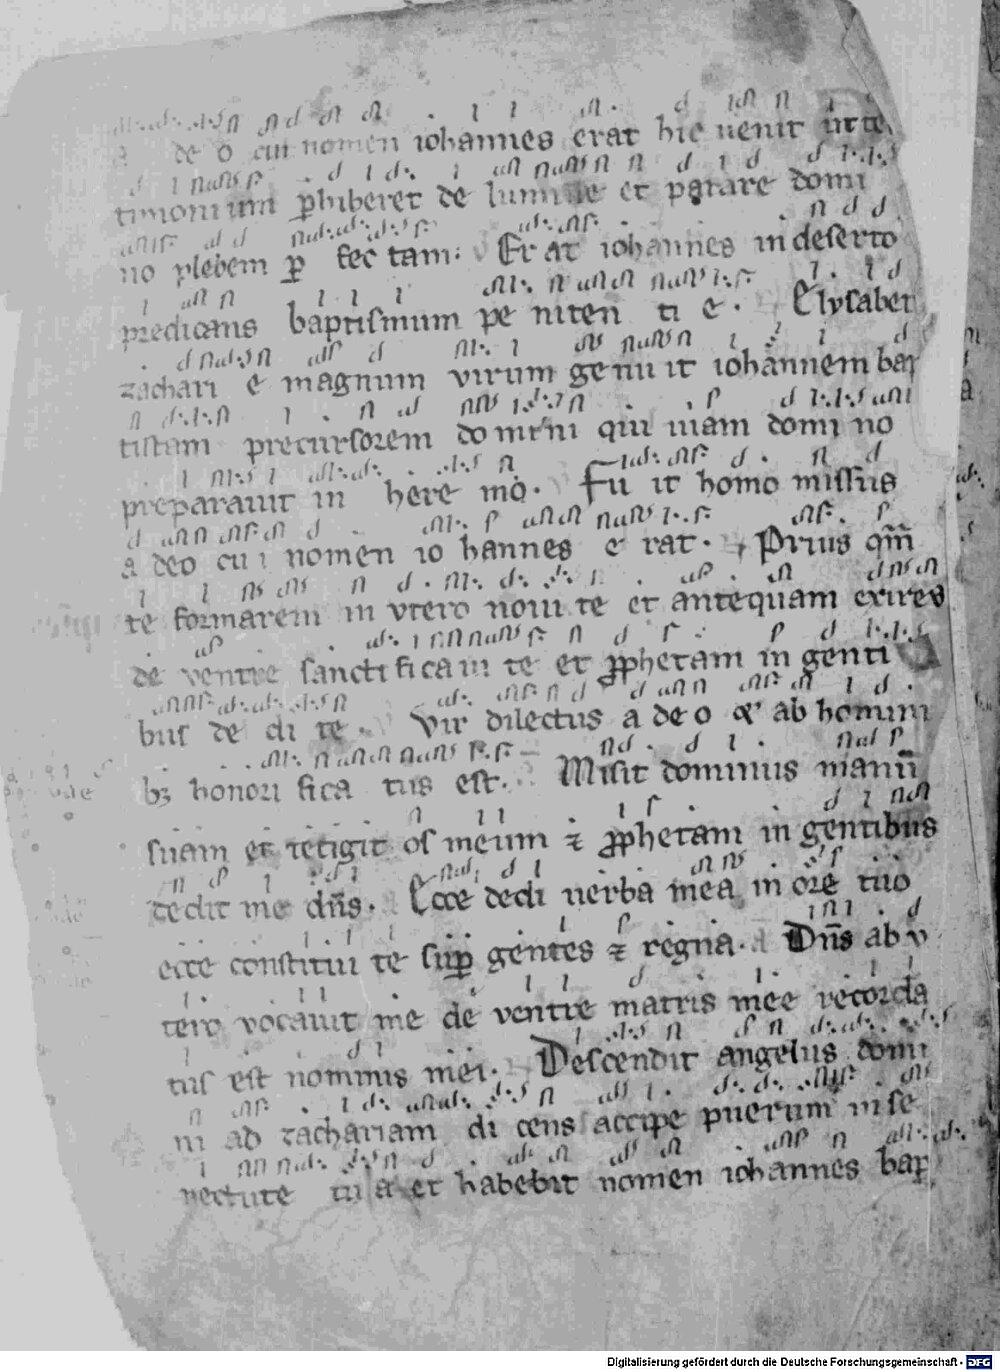 a de o cui nomen iohannes erat hic uenit ut te
timonium ꝑhiberet de lumine et parare domi
no plebem ꝑ fec tam. Er at iohannes in deserto
predicans baptismum pe niten ti e. Elysabet
zachari e magnum virum genu it iohannem bap
tistam precursorem do mi ni qui uiam domi no
preparauit in here mo. Fu it homo missus
a deo cu i nomen io hannes e rat. Prius qm̄
te formarem in vtero noui te et antequam exires
de ventre sancti fica ui te et ꝓphetam in genti
bus de di te. Vir dilectus a de o & ab homini
bꝫ honori fica tus est. Misit dominus manū
suam et tetigit os meum ⁊ ꝓphetam in gentibus
dedit me dn̄s. Ecce dedi uerba mea in ore tuo
ecce constitui te suꝑ gentes ⁊ regna. Dn̄s ab v
tero vocauit me de ventre matris mee recorda
tus est nominis mei. Descendit angelus domi
ni ad zachariam di cens accipe puerum in se
nectute tu a et habebit nomen iohannes bap
Digitalisierung gefördert durch die Deutsche Forschungsgemeinschaft - DFG